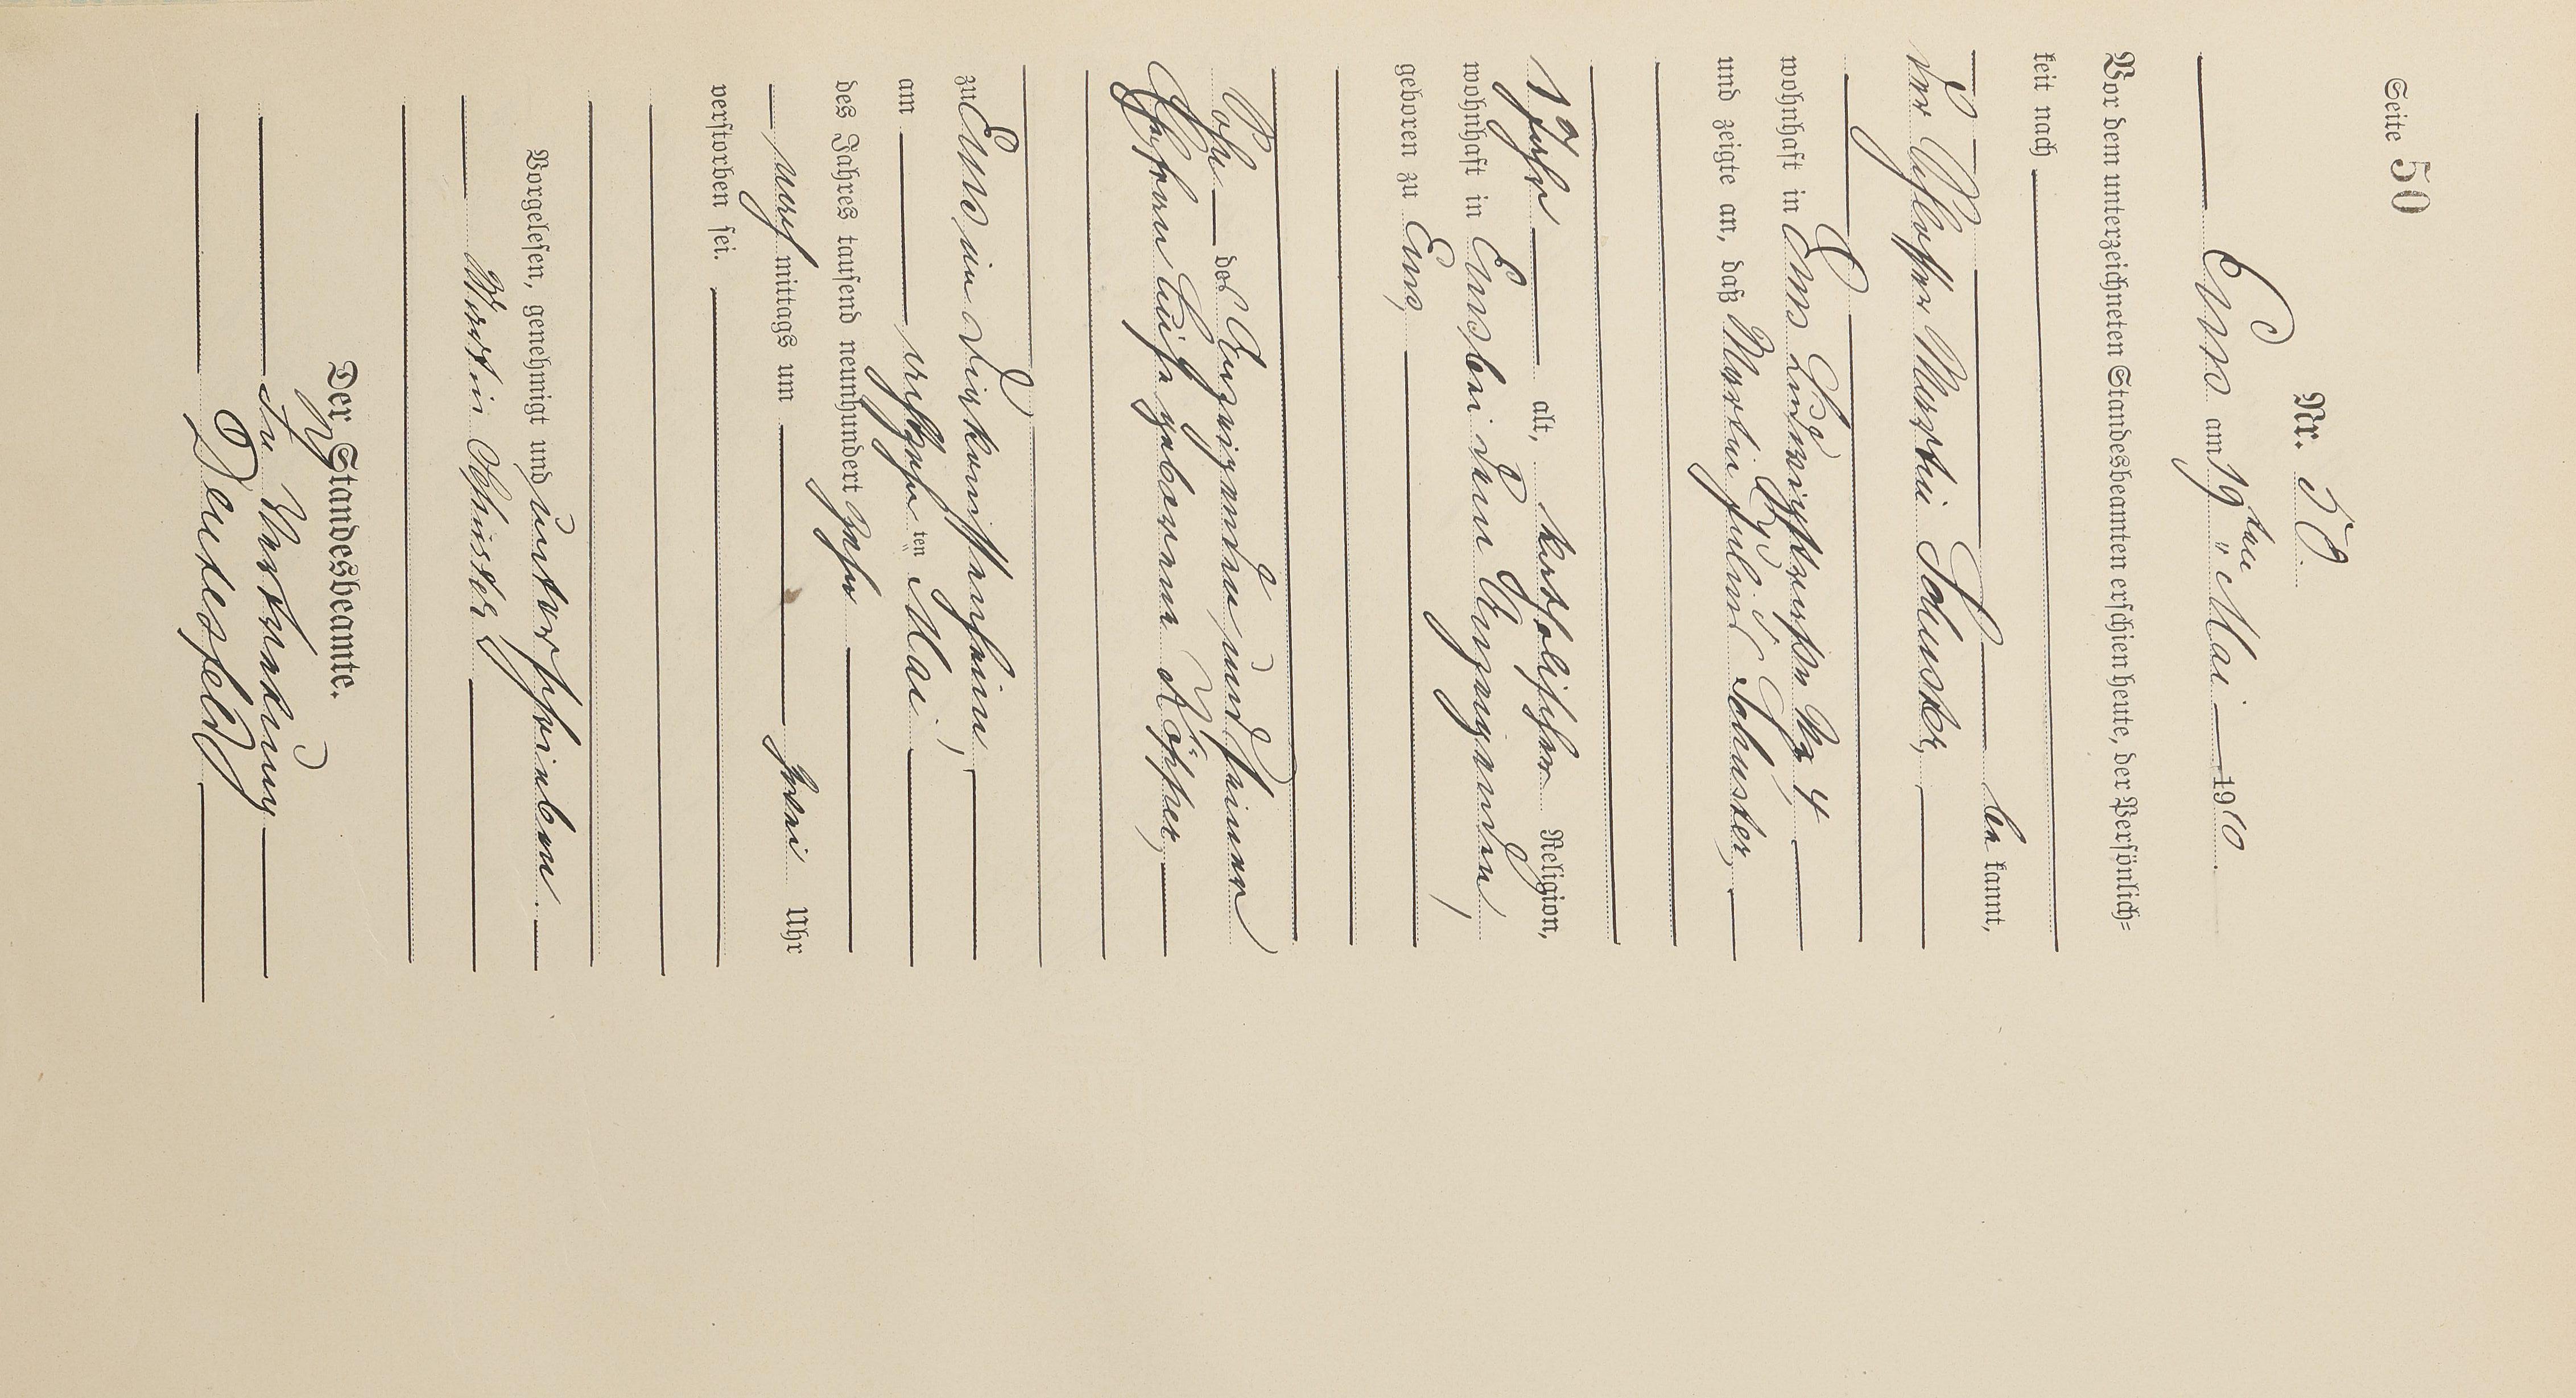 Seite 50
Nr. 50.
Ems am 19ten Mai 1910.
Vor dem unterzeichneten Standesbeamten erschien heute, der Persönlich=
keit nach
be kannt,
der Schlosser Martin Schuster,
wohnhaft in Ems Ludwigstraße No 4
und zeigte an, daß Martin Julius Schuster,
1 Jahr alt, katholischer Religion,
wohnhaft in Ems bei dem Anzeigenden,
geboren zu Ems,
Sohn des Anzeigenden und seiner
Ehefrau Luise geborenen Köpper,
zu Ems im Diakonissenheim,
am achtzehn ten Mai
des Jahres tausend neunhundert zehn
nach mittags um zwei Uhr
verstorben sei.
Vorgelesen, genehmigt und unterschrieben.
Martin Schuster
Der Standesbeamte.
In Vertretung